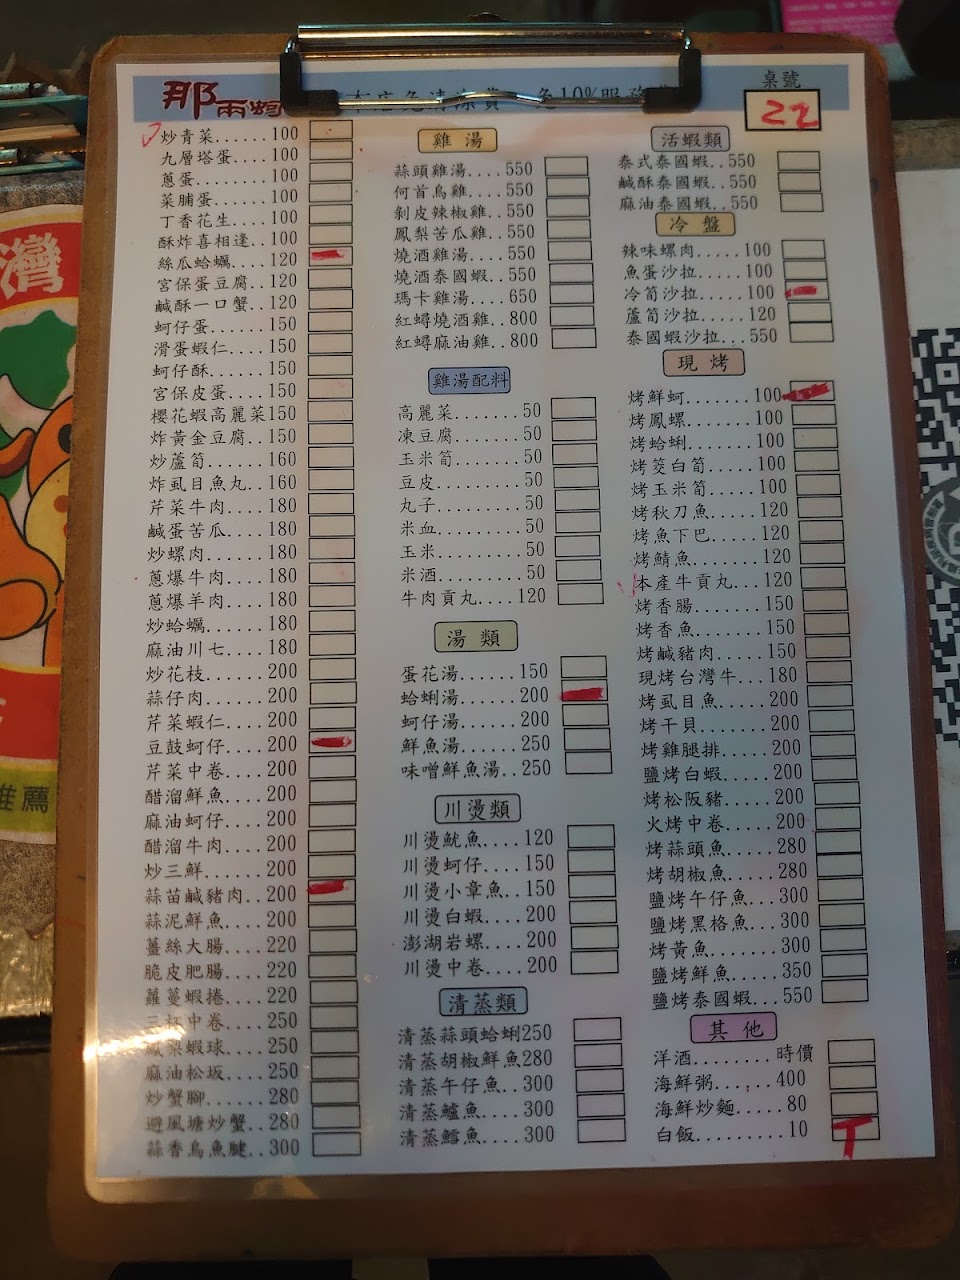 那兩蚵
桌號
22
炒青菜......100
九層塔蛋....100
蔥蛋........100
菜脯蛋......100
丁香花生....100
酥炸喜相逢..100
絲瓜蛤蠣....120
宮保蛋豆腐..120
鹹酥一口蟹..120
蚵仔蛋......150
滑蛋蝦仁....150
蚵仔酥......150
宮保皮蛋....150
櫻花蝦高麗菜150
炸黃金豆腐..150
炒蘆筍......160
炸虱目魚丸..160
芹菜牛肉....180
鹹蛋苦瓜....180
炒螺肉......180
蔥爆牛肉....180
蔥爆羊肉....180
炒蛤蠣......180
麻油川七....180
炒花枝......200
蒜仔肉......200
芹菜蝦仁....200
豆鼓蚵仔....200
芹菜中卷....200
醋溜鮮魚....200
麻油蚵仔....200
醋溜牛肉....200
炒三鮮......200
蒜苗鹹豬肉..200
蒜泥鮮魚....200
薑絲大腸....220
脆皮肥腸....220
蘿蔓蝦捲....220
三杯中卷....250
鳳梨蝦球....250
麻油松坂....250
炒蟹腳......280
避風塘炒蟹..280
蒜香烏魚腱..300
雞湯
蒜頭雞湯....550
何首烏雞....550
剝皮辣椒雞..550
鳳梨苦瓜雞..550
燒酒雞湯....550
燒酒泰國蝦..550
瑪卡雞湯....650
紅蟳燒酒雞..800
紅蟳麻油雞..800
雞湯配料
高麗菜.......50
凍豆腐.......50
玉米筍.......50
豆皮.........50
丸子.........50
米血.........50
玉米.........50
米酒.........50
牛肉貢丸....120
湯類
蛋花湯......150
蛤蜊湯......200
蚵仔湯......200
鮮魚湯......250
味噌鮮魚湯..250
川燙類
川燙魷魚....120
川燙蚵仔....150
川燙小章魚..150
川燙白蝦....200
澎湖岩螺....200
川燙中卷....200
清蒸類
清蒸蒜頭蛤蜊250
清蒸胡椒鮮魚280
清蒸午仔魚..300
清蒸鱸魚....300
清蒸鱈魚....300
活蝦類
泰式泰國蝦..550
鹹酥泰國蝦..550
麻油泰國蝦..550
冷盤
辣味螺肉....100
魚蛋沙拉....100
冷筍沙拉....100
蘆筍沙拉....120
泰國蝦沙拉..550
現烤
烤鮮蚵......100
烤鳳螺......100
烤蛤蜊......100
烤筊白筍....100
烤玉米筍....100
烤秋刀魚....120
烤魚下巴....120
烤鯖魚......120
本產牛貢丸..120
烤香腸......150
烤香魚......150
烤鹹豬肉....150
現烤台灣牛..180
烤虱目魚....200
烤干貝......200
烤雞腿排....200
鹽烤白蝦....200
烤松阪豬....200
火烤中卷....200
烤蒜頭魚....280
烤胡椒魚....280
鹽烤午仔魚..300
鹽烤黑格魚..300
烤黃魚......300
鹽烤鮮魚....350
鹽烤泰國蝦..550
其他
洋酒.......時價
海鮮粥......400
海鮮炒麵.....80
白飯.........10
T
灣
推薦